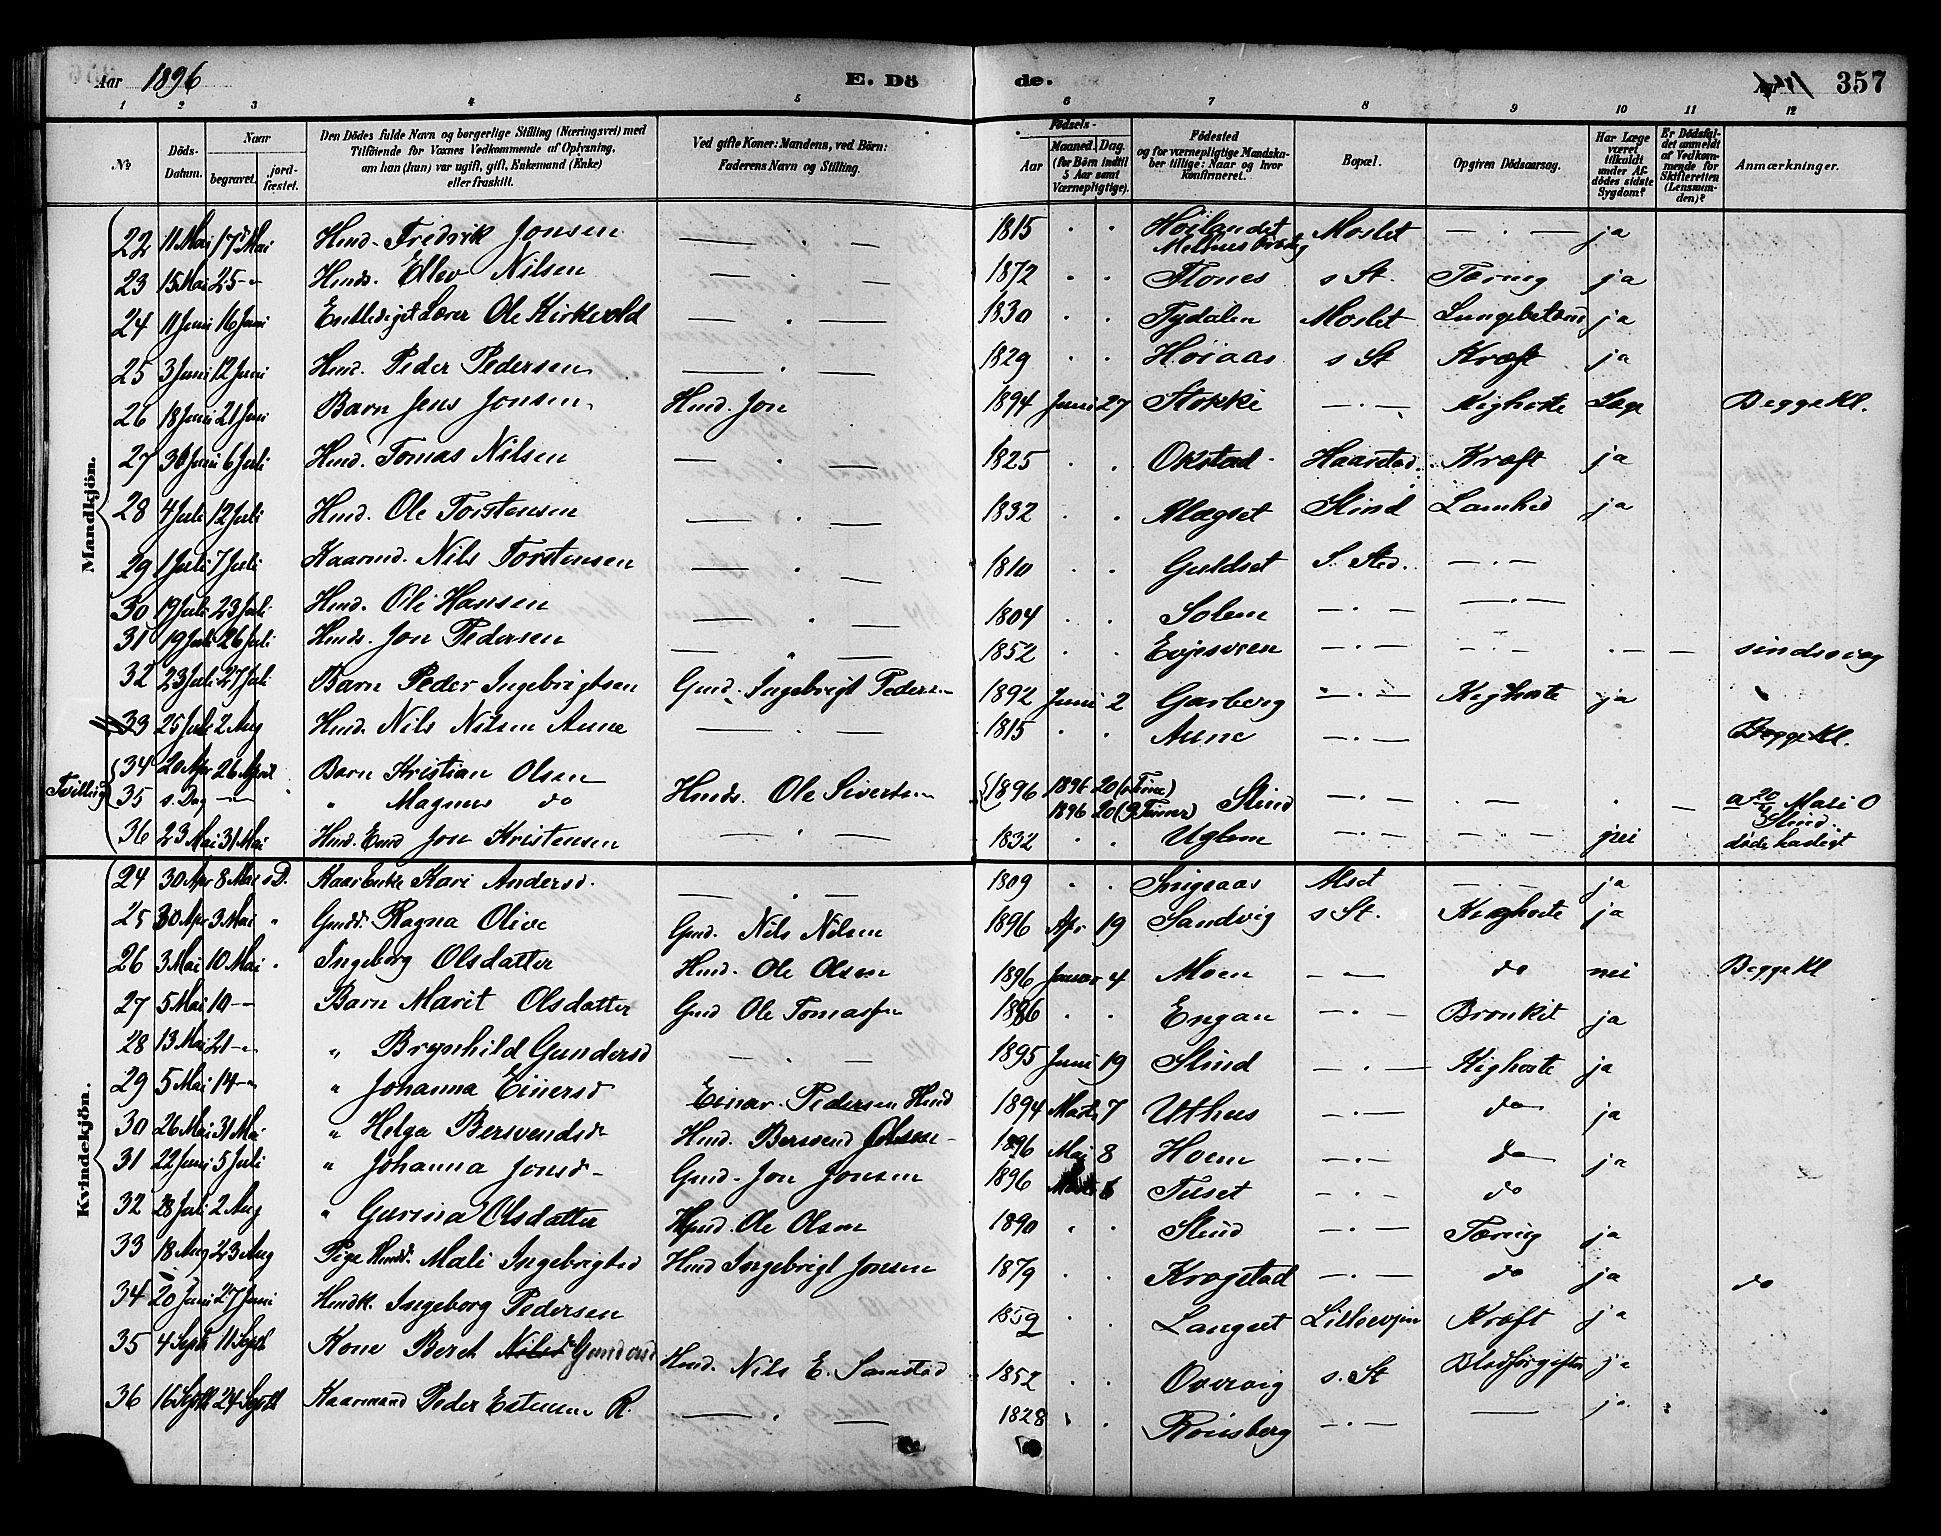 Aar 1896 E. Dö de. 357
1 2 3 4 5 6 7 8 9 10 11 12
№ Döds-Datum. Naar begravet. jord-fæstet. Den Dödes fulde Navn og borgerlige Stilling (Næringsvei) med Tilföiende for Voxnes Vedkommende af Oplysning, om han (hun) var ugift, gift, Enkemand (Enke) eller fraskilt. Ved gifte Koner: Mandens, ved Börn: Faderens Navn og Stilling. Födsels- Aar Maaned. Dag. (for Börn indtil 5 Aar samt Værnepligtige). Födested og for værnepligtige Mandskaber tillige: Naar og hvor konfirmeret. Bopæl. Opgiven Dödsaarsag. Har Læge været tilkaldt under Afdödes sidste Sygdom? Er Dödsfaldet anmeldt af Vedkommende for Skifteretten (Lensmanden)? Anmærkninger.
Mandkjön.
22 11 Mai 17de Mai Hmd. Fredrik Jonsen — . — 1815 . . Höilandet Moslet — . — ja
23 15 Mai 25 -"- Hmds. Ellev Nilsen — . — 1872 . . Flones s St. Tæring ja
24 11 Juni 16 Juni Entlediget Lærer Ole Kirkvold — . — 1830 . . Tydalen Moslet Lungebetæn ja
25 3 Juni 12 Juni Hmd. Peder Pedersen — . — 1829 . . Höiaas s St Kræft ja
26 18 Juni 21 Juni Barn Jens Jonsen Hmd. Jon 1894 Juni 27 Stokke — . — Kighoste Læge Begge Kl.
27 30 Juni 6 Juli Hmd. Tomas Nilsen — . — 1825 . . Okstad Haarstad Kræft ja
28 4 Juli 12 Juli Hmd. Ole Torstensen — . — 1832 . . Mægset Slind Lamhed ja
29 1 Juli 7 Juli Kaarmd. Nils Torstensen — . — 1810 . . Guldset S. Sted. — . —
30 19 Juli 23 Juli Hmd. Ole Hansen — . — 1804 . . Solem — . — — . —
31 19 Juli 26 Juli Hmds. Jon Pedersen — " — 1852 . . — . — — . — . — — sindssvag
32 23 Juli 27 Juli Barn Peder Ingebrigtsen Gmd. Ingebrigt Pedersen 1892 Juni 2 Garberg — . — Kighoste ja
33 25 Juli 2 Aug Hmd. Nils Nilsen Aune — . — 1815 . . Aune — . — Begge Kl.
Tvilling
34 20 Apr 26 April Barn Kristian Olsen
35 s. Dag -"- " Magnus do Hmds. Ole Sivertsen 1896 1896 20 1896 20 Slind — . — — . — . — Slind.
36 23 Mai 31 Mai Hmd. Emd Jon Kristensen — . — 1832 . . Uglem — . — — . — nei döde hastigt
Kvindekjön.
24 30 Apr 8 Mai s D. Kaar Enke Kari Andersd. — . — 1809 . . Alset — . — ja
25 30 Apr 3 Mai " Gmdd. Ragna Olive Gmd. Nils Nilsen 1896 Apr 19 Sandvig s St. Kighoste ja
26 3 Mai 10 Mai . Ingeborg Olsdatter Hmd. Ole Olsen 1896 Januar 4 Moen — — do nei Begge Kl
27 5 Mai 10 -"- Barn Marit Olsdatter Gmd Ole Tomassen 1896 . . Engan — . — Bronkit ja
28 13 Mai 21 -"- " Brynhild Gundersd — . — 1895 Juni 19 Slind — . — Kighoste ja
29 5 Mai 14 -"- " Johanna Einersd Einar Pedersen Hmd 1894 Marts 7 Uthus — . — do ja
30 26 Mai 31 Mai " Helga Bersvendsd. Hmd. Bersvend Olsen 1896 Mai 8 Hoem — . — do ja
31 22 Juni 5 Juli " Johanna Jonsd. Gmd. Jon Jonsen 1896 6 Tuset — . — do
32 28 Juli 2 Aug " Gurina Olsdatter Hmd. Ole Olsen 1890 " . Slind — . — Tæring ja
33 18 Aug 23 Aug Pige Hmdd. Mali Ingebrigtsd Hmd Ingebrigt Jonsen 1879 . . Krogstad — . — do ja do
34 20 Juni 27 Juni Hmdk. Ingeborg Pedersen 1859 . . Langset Lillevjen Kræft ja
35 4 Septb 11 Septb Kone Beret Gundersd Hmd. Nils E. Samstad 1852 . . Overvig s. St Blodforgiftn ja
36 16 Septb 24 Septb Kaarmand Peder Estensen R. — . — 1828 . . Rönsberg — . — — ja